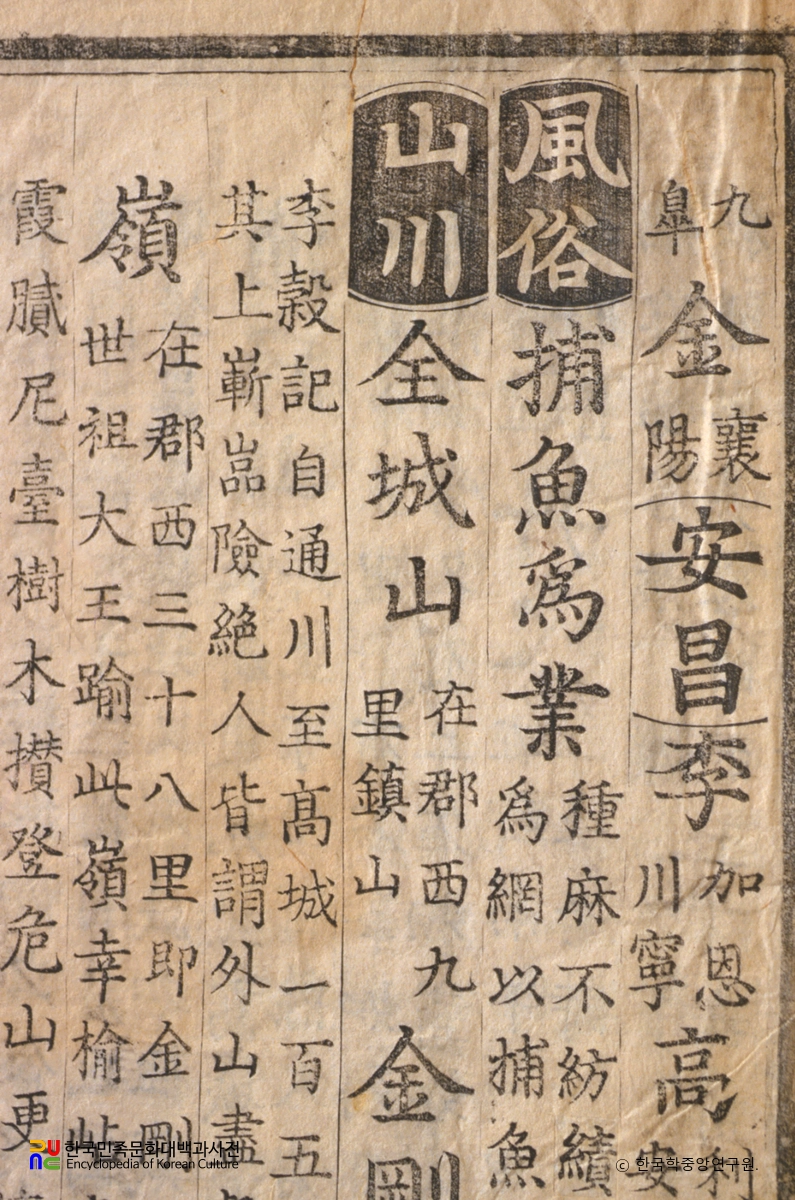 九皐金襄陽安昌李加恩川寧高
風俗捕魚爲業種麻不紡績
爲網以捕魚
山川全城山在郡西九
里鎮山金剛
李穀記自通川至高城一百五
其上嶄嵓險絶人皆謂外山盡
嶺在郡西三十八里即金剛
世祖大王踰此嶺幸楡岾
霞膩尼臺樹木攢登危山更
한국민족문화대백과사전
Encyclopedia of Korean Culture
© 한국학중앙연구원.